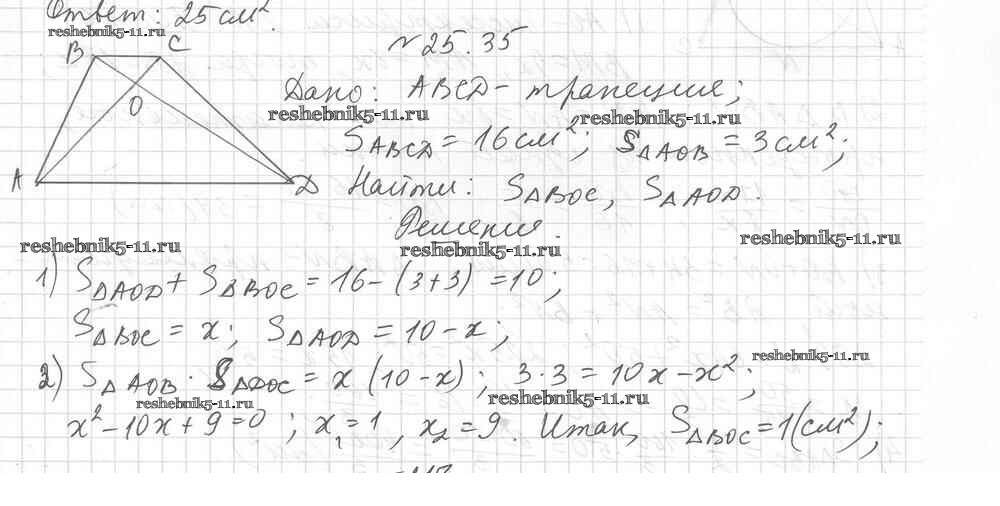 Ответ: 25 см².
reshebnik5-11.ru
B C
№ 25.35
O
Дано: ABCD - трапеция;
reshebnik5-11.ru reshebnik5-11.ru
S ABCD = 16 см²; S ΔAOB = 3 см²;
A D Найти: S ΔBOC, S ΔAOD.
Решения.
reshebnik5-11.ru reshebnik5-11.ru reshebnik5-11.ru
1) S ΔAOD + S ΔBOC = 16 - (3+3) = 10;
S ΔBOC = x; S ΔAOD = 10 - x;
reshebnik5-11.ru
2) S ΔAOB · S ΔDOC = x (10 - x); 3 · 3 = 10x - x²;
reshebnik5-11.ru reshebnik5-11.ru
x² - 10x + 9 = 0; x₁ = 1, x₂ = 9. Итак, S ΔBOC = 1 (см²);